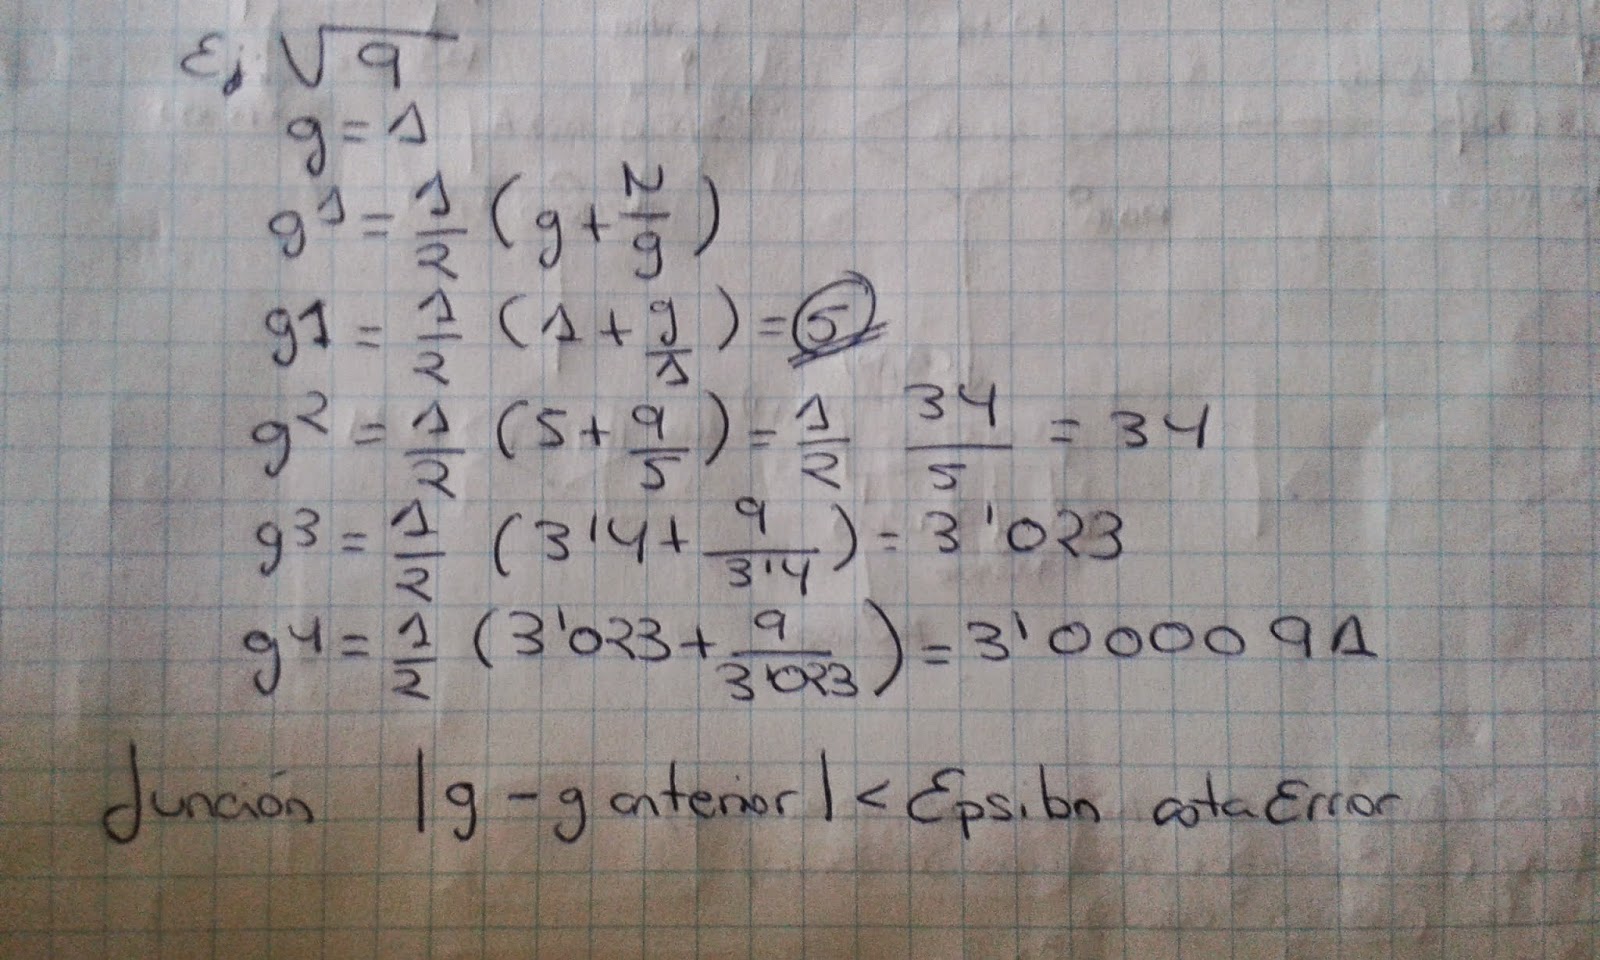 Ej √9
g = 1
g1 = 1/2 (g + z/g)
g1 = 1/2 (1 + 9/1) = 5
g2 = 1/2 (5 + 9/5) = 1/2 34/5 = 34
g3 = 1/2 (3'4 + 9/3'4) = 3'023
g4 = 1/2 (3'023 + 9/3'023) = 3'000091
función |g - g anterior| < Epsilon cota Error